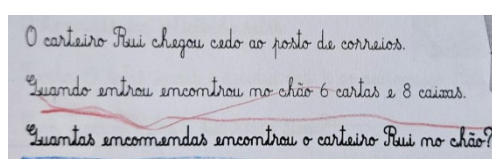 O carteiro Rui chegou cedo ao posto de correios.
Quando entrou encontrou no chão 6 cartas e 8 caixas.
Quantas encomendas encontrou o carteiro Rui no chão?